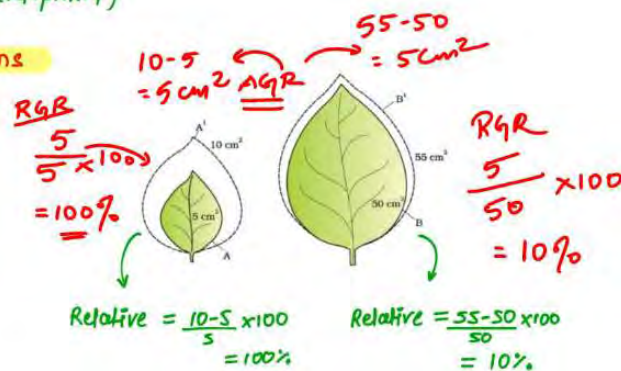 ns
10-5
= 5 cm² AGR
55-50
= 5 cm²
RGR
5
5 ×100
= 100%
A¹
10 cm²
5 cm²
A
B¹
55 cm²
50 cm²
B
RGR
5
50 ×100
= 10%
Relative = 10-5 ×100
5
= 100%
Relative = 55-50 ×100
50
= 10%